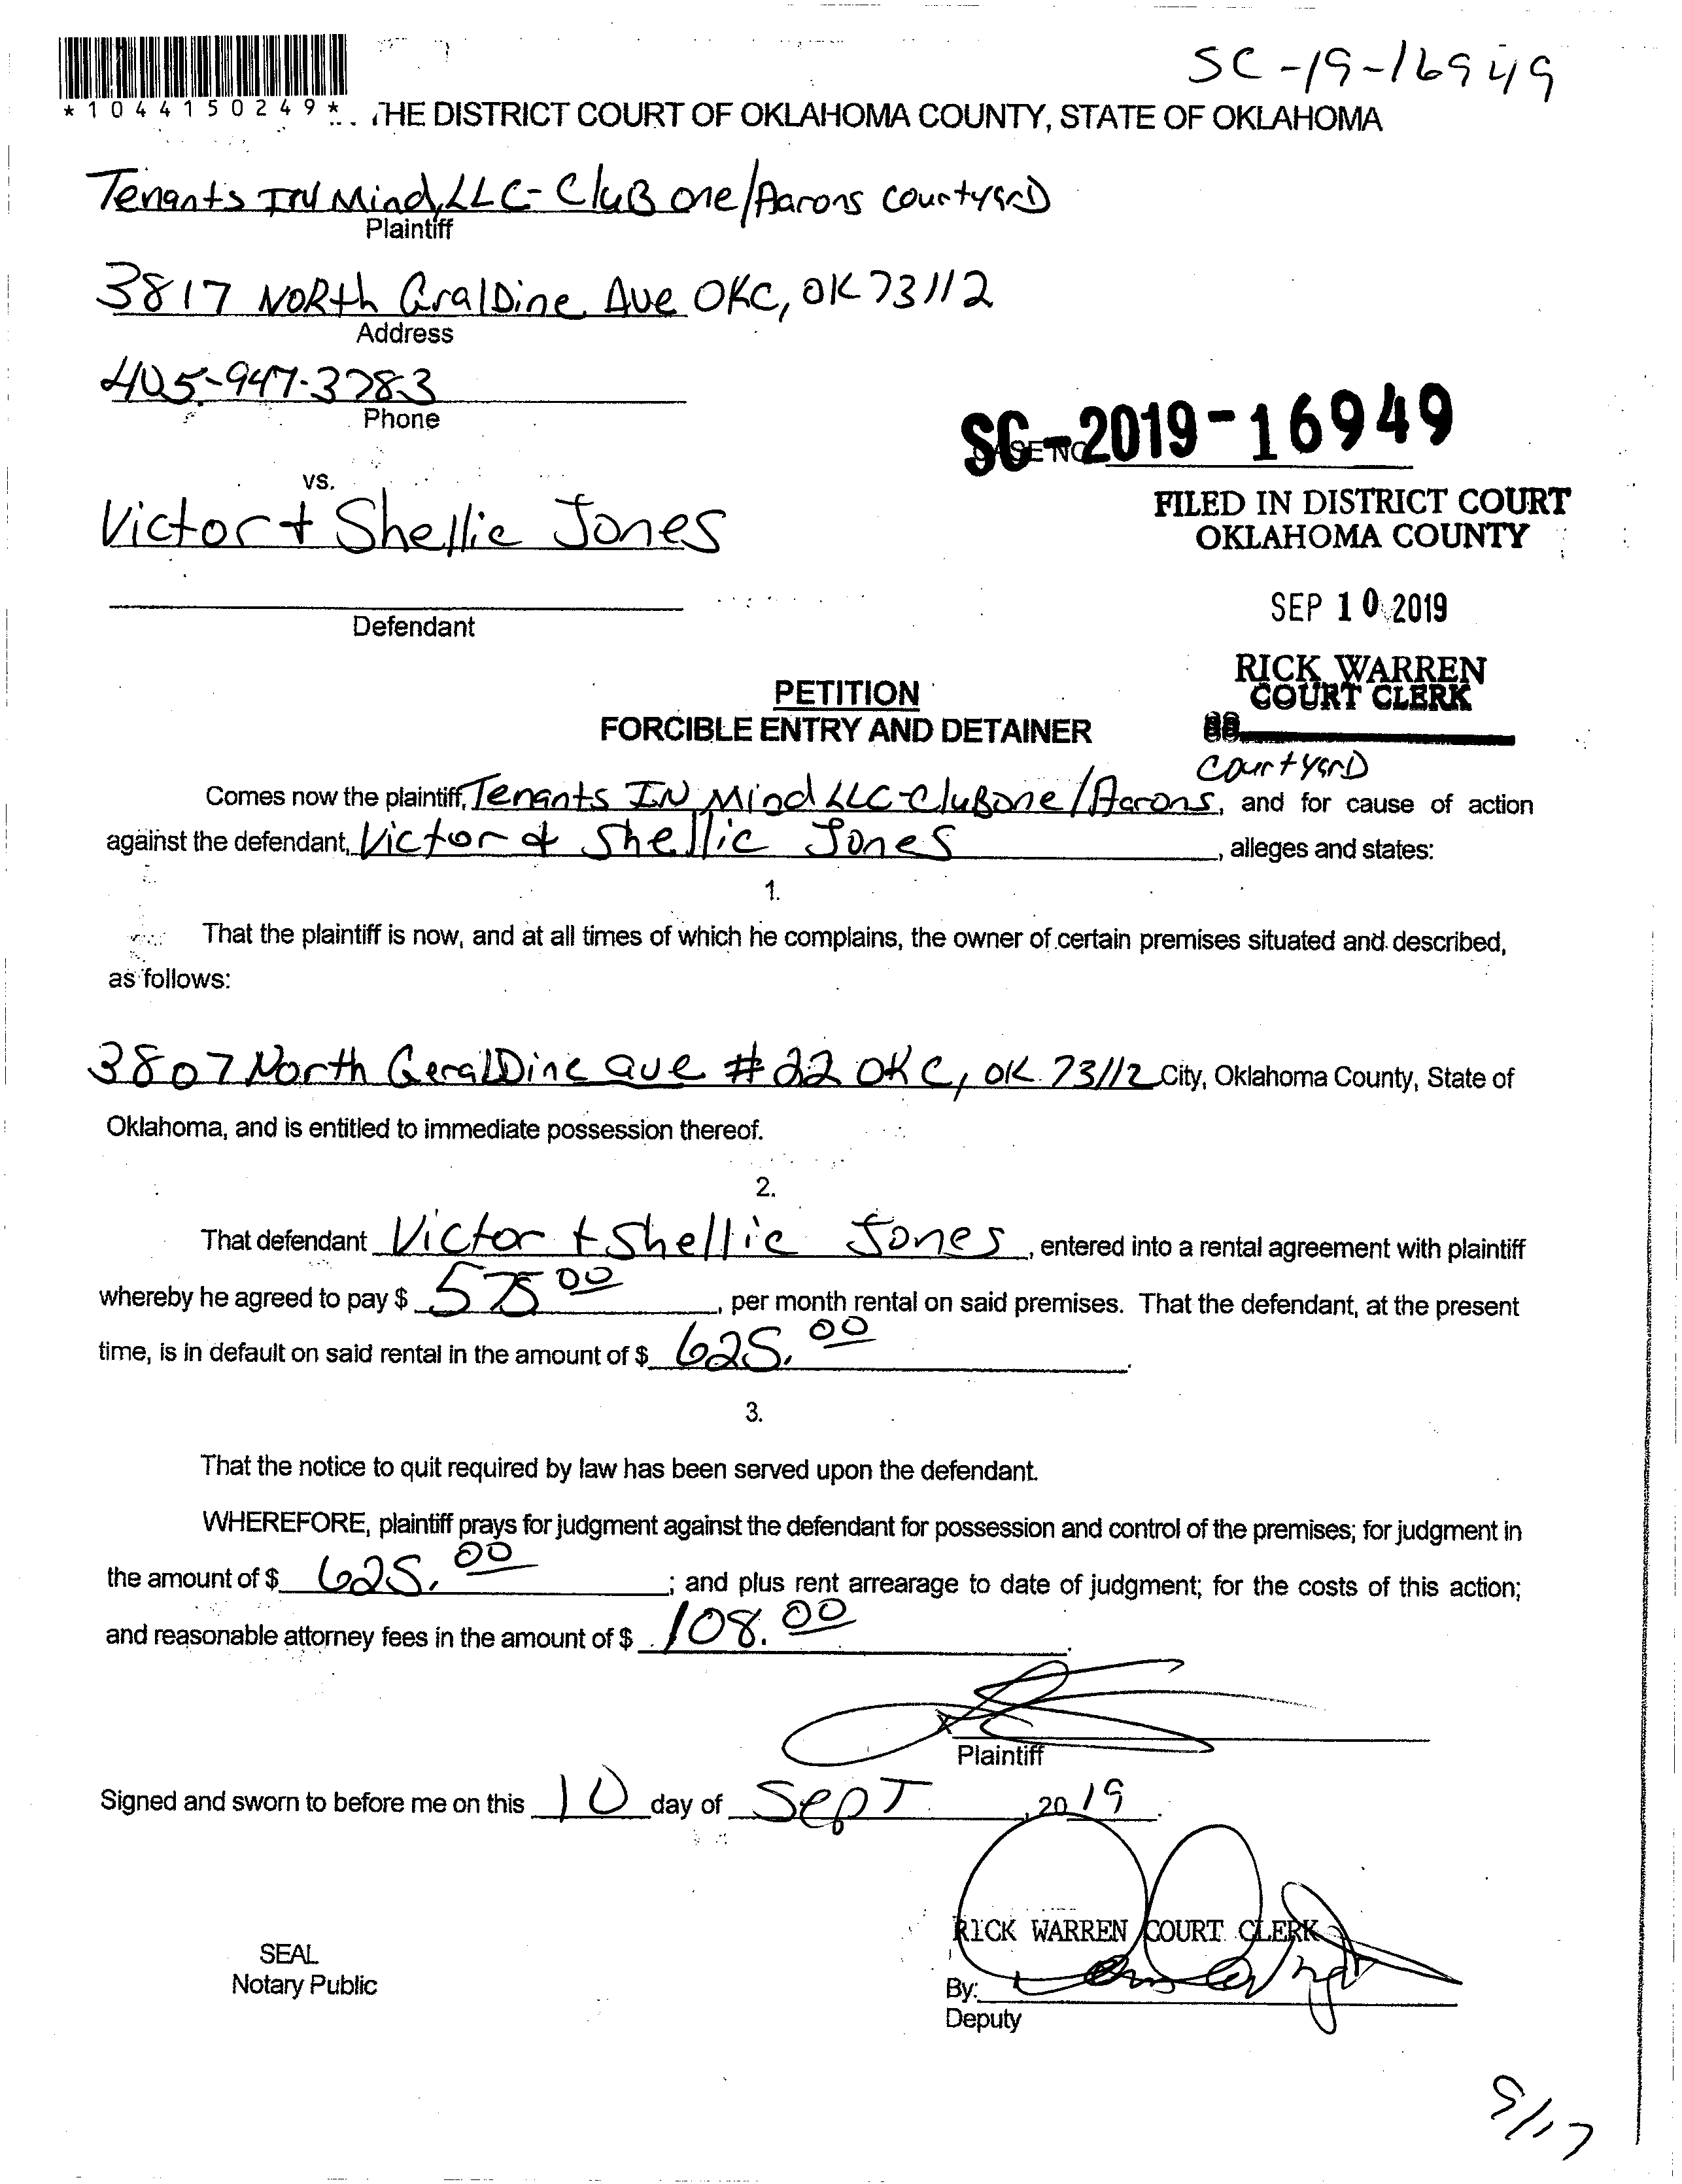 SC-19-16949
*1044150249*
THE DISTRICT COURT OF OKLAHOMA COUNTY, STATE OF OKLAHOMA
Tenants IN Mind, LLC - CluB one/Aarons courtyarD
Plaintiff
3817 NoRth GralDine Ave OKC, OK 73112
Address
405-947-3783
Phone
SC-2019-16949
CASE NO
vs.
FILED IN DISTRICT COURT
OKLAHOMA COUNTY
Victor + Shellie Jones
SEP 10 2019
Defendant
RICK WARREN
COURT CLERK
PETITION
FORCIBLE ENTRY AND DETAINER
courtyarD
Comes now the plaintiff, Tenants IN Mind LLC-CluBone/Aarons, and for cause of action
against the defendant, Victor & Shellie Jones, alleges and states:
1.
That the plaintiff is now, and at all times of which he complains, the owner of certain premises situated and described,
as follows:
3807 North GeralDine ave #22 OKC, OK. 73112 City, Oklahoma County, State of
Oklahoma, and is entitled to immediate possession thereof.
2.
That defendant Victor + Shellie Jones, entered into a rental agreement with plaintiff
whereby he agreed to pay $ 575 00, per month rental on said premises. That the defendant, at the present
time, is in default on said rental in the amount of $ 625. 00.
3.
That the notice to quit required by law has been served upon the defendant.
WHEREFORE, plaintiff prays for judgment against the defendant for possession and control of the premises; for judgment in
the amount of $ 625. 00; and plus rent arrearage to date of judgment; for the costs of this action;
and reasonable attorney fees in the amount of $ 108. 00.
x
Plaintiff
Signed and sworn to before me on this 10 day of SepT, 20 19.
RICK WARREN COURT CLERK
SEAL
Notary Public
By:
Deputy
9/17